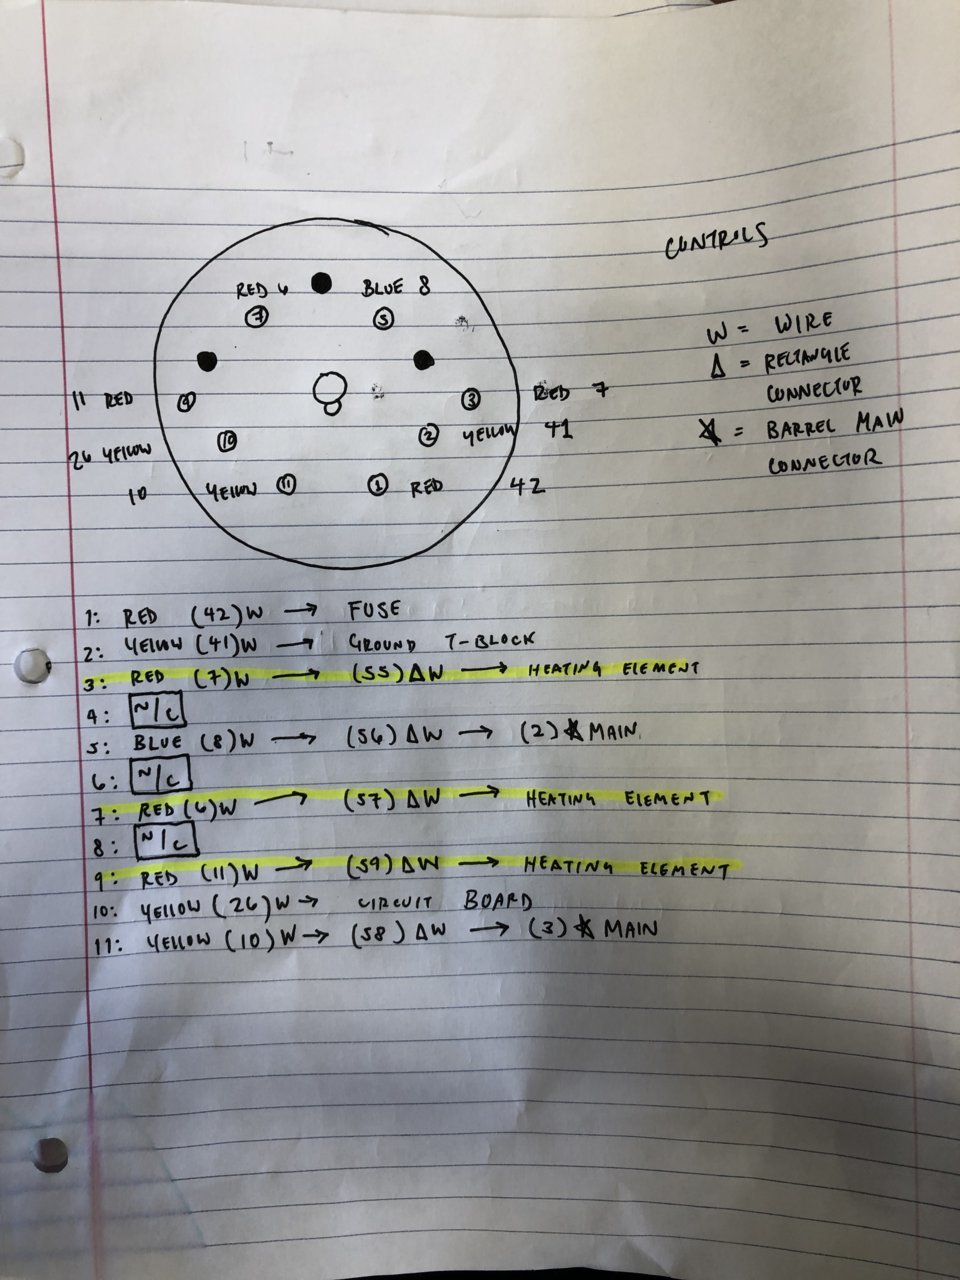 CONTROLS
RED 6 BLUE 8
7 5
W = WIRE
Δ = RECTANGLE
CONNECTOR
★ = BARREL MAIN
CONNECTOR
11 RED 9 3 RED 7
26 YELLOW 10 2 YELLOW 41
10 YELLOW 11 1 RED 42
1: RED (42) W → FUSE
2: YELLOW (41) W → GROUND T-BLOCK
3: RED (7) W → (55) ΔW → HEATING ELEMENT
4: N/C
5: BLUE (8) W → (56) ΔW → (2) ★ MAIN
6: N/C
7: RED (6) W → (57) ΔW → HEATING ELEMENT
8: N/C
9: RED (11) W → (59) ΔW → HEATING ELEMENT
10: YELLOW (26) W → CIRCUIT BOARD
11: YELLOW (10) W → (58) ΔW → (3) ★ MAIN